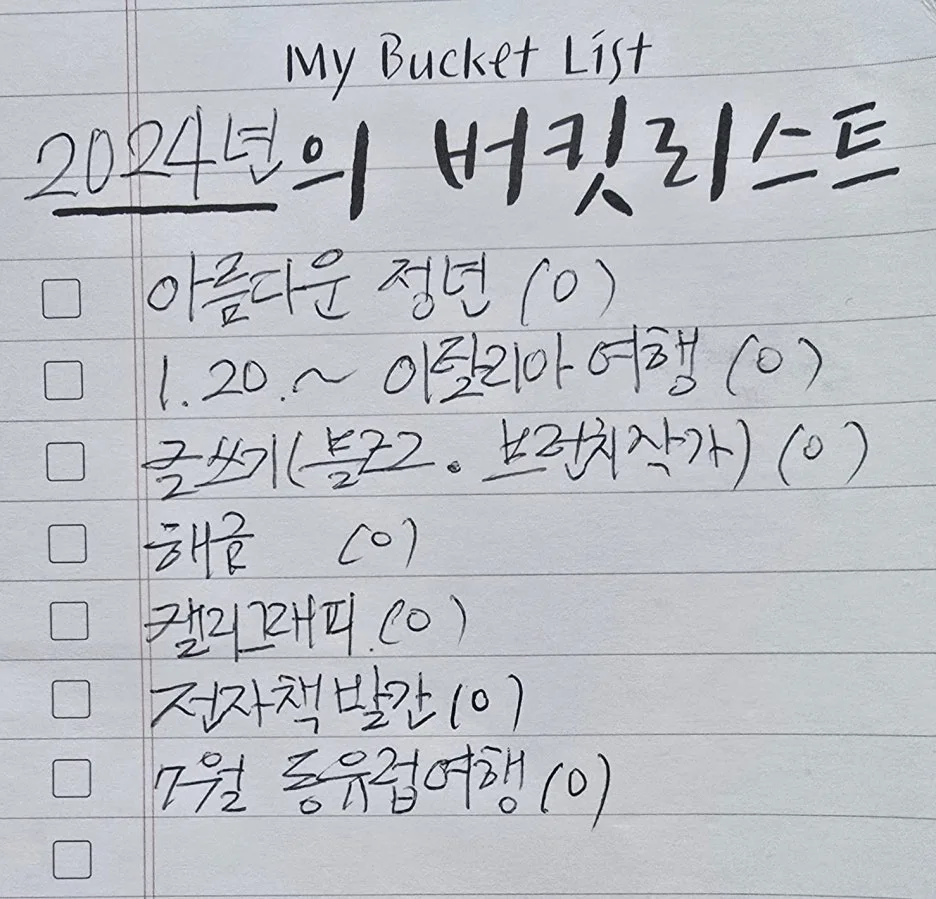 My Bucket List
2024년의 버킷리스트
아름다운 정년 (0)
1.20.~ 이탈리아 여행 (0)
글쓰기(블로그. 브런치작가) (0)
해금 (0)
캘리그래피.(0)
전자책 발간 (0)
7월 동유럽여행 (0)